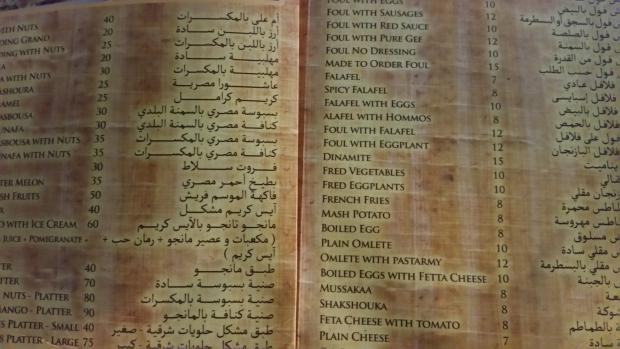 WITH NUTS 40 أم على بالمكسرات
DING GRAND 20 أرز باللبن سادة
DING WITH NUTS 30 أرز باللبن بالمكسرات
20 مهلبية سادة
A WITH NUTS 30 مهلبية بالمكسرات
ASHOURA 25 عاشورا مصرية
AMEL 25 كريم كرامل
ASBOUSA 30 بسبوسة مصري بالسمنة البلدي
UNAFA 30 كنافة مصري بالسمنة البلدي
ASBOUSA WITH NUTS 35 بسبوسة مصري بالمكسرات
UNAFA WITH NUTS 35 كنافة مصري بالمكسرات
30 فروت سلاط
TER MELON 35 بطيخ أحمر مصري
SH FRUITS 50 فاكهة الموسم فريش
40 آيس كريم مشكل
O WITH ICE CREAM 60 مانجو تانجو بالآيس كريم
JUICE + POMIGRANATE + ( مكعبات و عصير مانجو + رمان حب +
آيس كريم )
TER 40 طبق مانجو
TTER 70 صنية بسبوسة سادة
NUTS - PLATTER 80 صنية بسبوسة بالمكسرات
ANGO - PLATTER 90 صنية كنافة بالمانجو
S PLATTER - SMALL 40 طبق مشكل حلويات شرقية - صغير
S PLATTER - LARGE 75 طبق مشكل حلويات شرقية - كبير
FOUL WITH EGGS 10 فول بالبيض
FOUL WITH SAUSAGES 12 فول بالسجق أو البسطرمة
FOUL WITH RED SAUCE 10 فول بالصلصة
FOUL WITH PURE GEF 12 فول بالسمنة
FOUL NO DRESSING 10 فول من القدرة
MADE TO ORDER FOUL 15 فول حسب الطلب
FALAFEL 7 فلافل عادي
SPICY FALAFEL 8 فلافل إسبايسى
FALAFEL WITH EGGS 10 فلافل بالبيض
ALAFEL WITH HOMMOS 8 فلافل بالحمص
FOUL WITH FALAFEL 12 فول على فلافل
FOUL WITH EGGPLANT 12 فول بالباذنجان
DINAMITE 15 ديناميت
FRED VEGETABLES 10
FRED EGGPLANTS 10 باذنجان مقلي
FRENCH FRIES 8 بطاطس محمرة
MASH POTATO 8 بطاطس مهروسة
BOILED EGG 8 بيض مسلوق
PLAIN OMLETE 8 بيض مقلي سادة
OMLETE WITH PASTARMY 12 بيض مقلي بالبسطرمة
BOILED EGGS WITH FETTA CHEESE 10 بالجبنة
MUSSAKAA 8
SHAKSHOUKA 8
FETA CHEESE WITH TOMATO 8 بالطماطم
PLAIN CHEESE 7 سادة